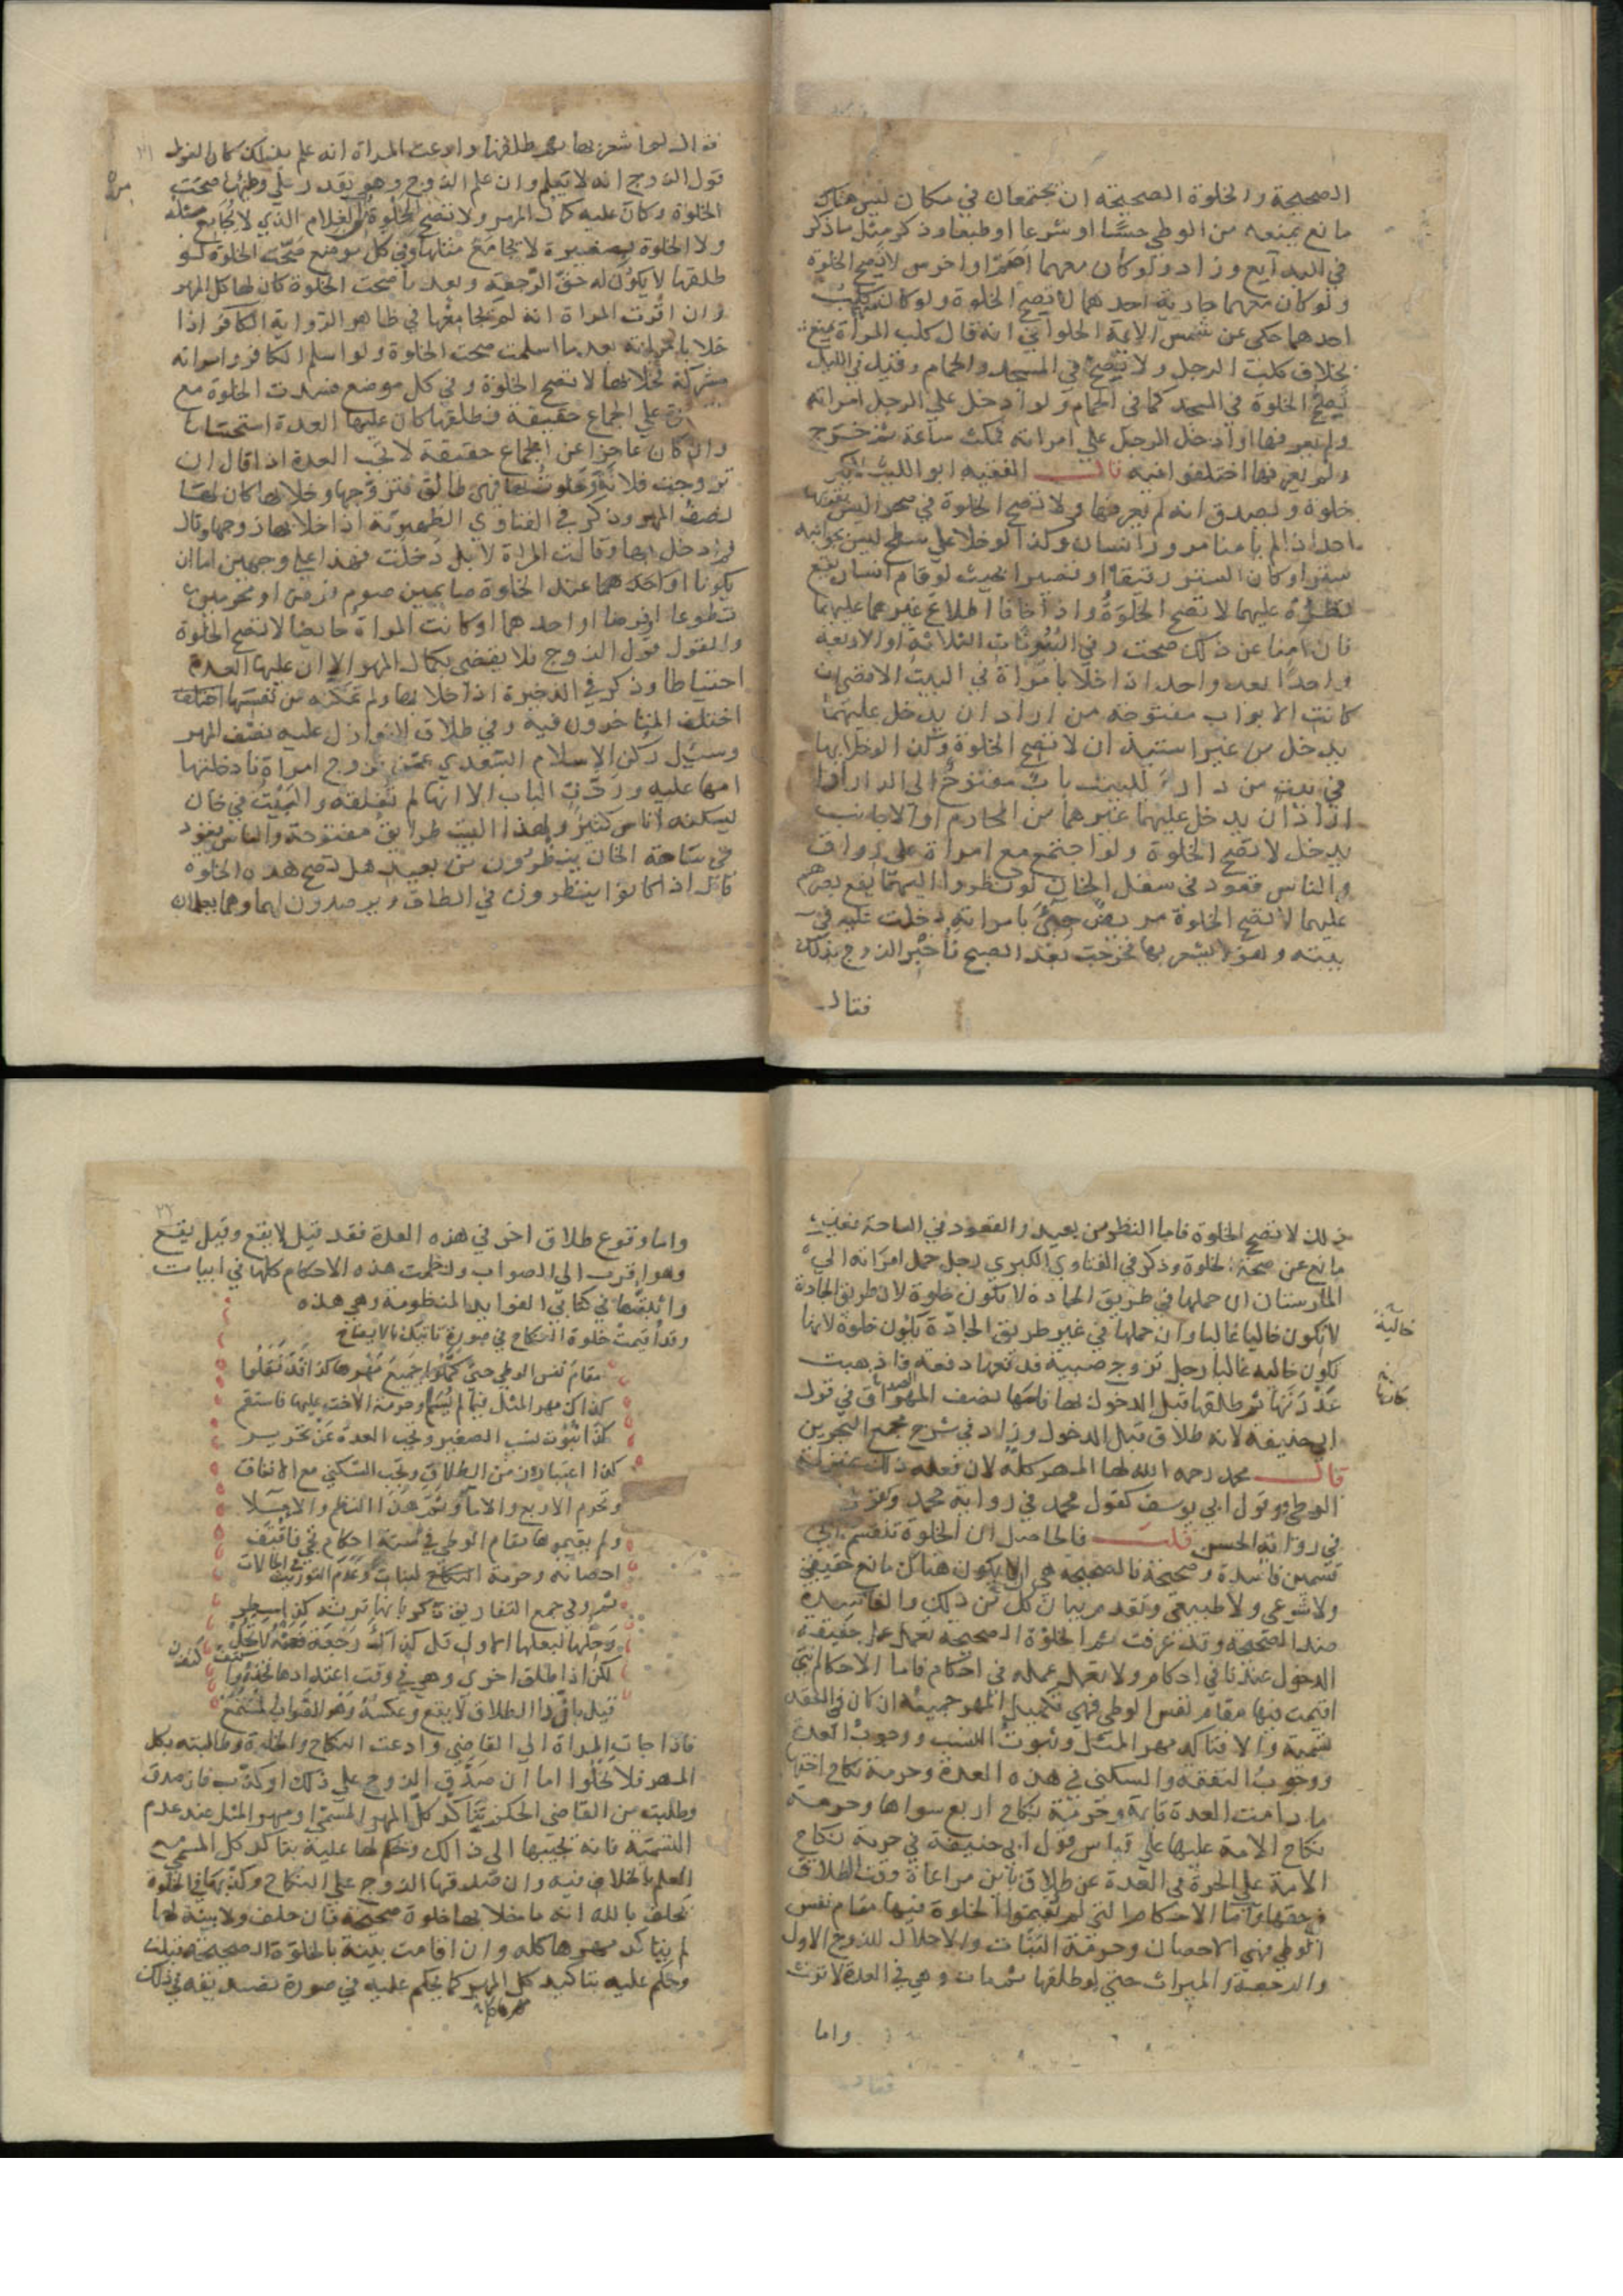 الصحيحة والخلوة الصحيحة ان يجتمعا في مكان ليس هناك
مانع يمنعه من الوطي حسا او شرعا او طبعا وذكر مثل ما ذكر
في البدايع وزاد ولو كان معهما اصم او اخرس لا تصح الخلوة
ولو كان معهما جارية احدهما لا تصح الخلوة ولو كان معهما كلب
احدهما حكى عن شمس الايمة الحلواني انه قال كلب المراة يمنع
بخلاف كلب الرجل ولا تصح في المسجد والحمام وقيل في الليل
تصح الخلوة في المسجد كما في الحمام ولو ادخل علي الرجل امراته
ولم يعرفها او ادخل الرجل علي امراته فمكث ساعة ثم خرج
ولم يعرفها اختلفوا فيه قال الفقيه ابو الليث
خلوة ويصدق انه لم يعرفها ولا تصح الخلوة في صحرا ليس بقربهما
احد اذا لم يامنا مرور انسان وكذا لو خلا علي سطح ليس بجوانبه
ستر او كان الستر رقيقا او قصيرا بحيث لو قام انسان يقع
نظره عليهما لا تصح الخلوة واذا خافا اطلاع غيرهما عليهما
فان امنا عن ذلك صحت وفي البيوتات الثلاثة او الاربعة
واحدا بعد واحد اذا خلا بامراة في البيت الاقصى ان
كانت الابواب مفتوحة من اراد ان يدخل عليهما
يدخل من غير استيذان لا تصح الخلوة ولو خلا بها
في بيت من دار للبيت باب مفتوح الى الدار اذا
اراد ان يدخل عليهما غيرهما من المحارم او الاجانب
يدخل لا تصح الخلوة ولو اجتمع مع امراة على رواق
والناس قعود في سفل الخان لو نظروا اليهما يقع بصرهم
عليهما لا تصح الخلوة مريض جيئ بامراته دخلت عليه في
بيته وهو لا يشعر بها فخرجت بعد الصبح فاخبر الزوج بذلك
فقال
فقال لم اشعر بها ثم طلقها وادعت المراة انه علم بذلك كان القول
قول الزوج انه لا يعلم وان علم الزوج وهو يقدر على وطيها صحت
الخلوة وكان عليه كمال المهر ولا تصح الخلوة الغلام الذي لا يجامع مثله
ولا الخلوة بصغيرة لا يجامع مثلها وفي كل موضع صحت الخلوة لو
طلقها لا يكون له حق الرجعة وبعد ما صحت الخلوة كان لها كل المهر
وان اقرت المراة انه لم يجامعها في ظاهر الرواية الكافر اذا
خلا بامراته بعد ما اسلمت صحت الخلوة ولو اسلم الكافر وامراته
مشركة فخلا بها لا تصح الخلوة وفي كل موضع فسدت الخلوة مع
علي الجماع حقيقة فطلقها كان عليها العدة استحسانا
وان كان عاجزا عن الجماع حقيقة لا تجب العدة اذا قال ان
تزوجت فلانة وخلوت بها فهي طالق فتزوجها وخلا بها كان لها
نصف المهر وذكر في الفتاوي الظهيرية اذا خلا بها زوجها وقال
لم ادخل بها وقالت المراة لا بل دخلت فهذا علي وجهين اما ان
يكونا او احدهما عند الخلوة صايمين صوم فرض او محرمين
تطوعا او فرضا او احدهما او كانت المراة حايضا لا تصح الخلوة
والقول قول الزوج فلا يقضي بكمال المهر الا ان عليها العدة
احتياطا وذكر في الدخيرة اذا خلا بها ولم تمكنه من نفسها اختلف
اختلف المتاخرون فيه وفي طلاق النوازل عليه نصف المهر
وسئل ركن الاسلام السعدي عمن تزوج امراة فادخلتها
امها عليه وردت الباب الا انها لم تغلقه والبيت في خان
يسكنه اناس كثير ولهذا البيت طوابق مفتوحة والناس قعود
في ساحة الخان ينظرون من بعيد هل تصح هذه الخلوة
قال اذا كانوا ينظرون في الطاق ويرصدون لهما وهما يعلمان
ذلك لا تصح الخلوة فاما النظر من بعيد والقعود في الساحة فغير
مانع عن صحة الخلوة وذكر في الفتاوي الكبري رجل حمل امراته الي
المارستان ان حملها في طريق الجادة لا تكون خلوة لان طريق الجادة
لا يكون خاليا غالبا وان حملها في غير طريق الجادة يكون خلوة لانها
تكون خاليه غالبا رجل تزوج صبية فدفعها دفعة فاذهبت
عذرتها ثم طلقها قبل الدخول بها فلها نصف المهر الصداق في قول
ابي حنيفة لانه طلاق قبل الدخول وزاد في شرح مجمع البحرين
قال محمد رحمه الله لها المهر كله لان فعله ذلك بمنزلة
الوطي وقول ابي يوسف كقول محمد في رواية محمد وعنه
في رواية الحسن قلت فالحاصل ان الخلوة تنقسم الي
قسمين فاسدة وصحيحة فالصحيحة هي ان لا يكون هناك مانع حقيقي
ولا شرعي ولا طبيعي وتقدم بيان كل من ذلك والفاسدة
ضد الصحيحة وقد عرفت ثم الخلوة الصحيحة تعمل عمل حقيقة
الدخول عندنا في احكام ولا تعمل عمله في احكام فاما الاحكام التي
اقيمت فيها مقام نفس الوطي فهي تكميل المهر جميعه ان كان في العقد
تسمية والا فتاكد مهر المثل وثبوت النسب ووجوب العدة
ووجوب النفقة والسكنى في هذه العدة وحرمة نكاح اختها
ما دامت العدة قايمة وحرمة نكاح اربع سواها وحرمة
نكاح الامة عليها علي قياس قول ابي حنيفة في حرمة نكاح
الامة علي الحرة في العدة عن طلاق باين مراعاة وقت الطلاق
في حقها واما الاحكام التي لم يقيموا الخلوة فيها مقام نفس
الوطي فهي الاحصان وحرمة البنات والاحلال للزوج الاول
والرجعة والميراث حتى لو طلقها ثم مات وهي في العدة لا ترث
واما
خالية
واما وقوع طلاق اخر في هذه العدة فقد قيل لا يقع وقيل يقع
وهو اقرب الى الصواب ونظمت هذه الاحكام كلها في ابيات
واثبتها في كتابي الفوايد المنظومة وهي هذه
وقد اقيمت خلوة النكاح في صورة تاتيك بالايضاح
مقام نفس الوطي حتى كملوا جميع مهرها كذا قد نقلوا
كذاك مهر المثل فيما لم يسم وحرمة الاخت عليها فاستقم
كذا ثبوت نسب الصغير وتجب العدة عن تحرير
كذا اعتبار وقت الطلاق وتجب السكنى مع الانفاق
وتحرم الاربع والاما وتم هذا النظم والاملا
ولم يقيموها مقام الوطي في ستة احكام تجي فاقتف
احصانه وحرمة النكاح لبنات وعدم التوريث في الحالات
ثم وفي جمع التفاريق ذكر بانها ترثه كذا سطر
وحلها لبعلها الاول قل كذاك رجعة فعنه لا تحل
لكن اذا طلق اخرى وهي في وقت اعتدادها فخذه وا كتف
قيل بان ذا الطلاق لا يقع وعكسه وهو الصواب المتبع
فاذا جات المراة الى القاضي وادعت النكاح والخلوة وطالبته بكل
المهر فلا يخلوا اما ان صدق الزوج علي ذلك او كذب فان صدق
وطلبت من القاضي الحكم بتاكد كل المهر المسمى او مهر المثل عند عدم
التسمية فانه يجيبها الى ذالك وحكم لها عليه بتاكد كل المسمى مع
العلم بالخلاف فيه وان صدقها الزوج علي النكاح وكذبها في الخلوة
يحلف بالله انه ما خلا بها خلوة صحيحة فان حلف ولا بينة لها
لم يتاكد مهرها كله وان اقامت بينة بالخلوة الصحيحة قبلت
وحكم عليه بتاكيد كل المهر كما يحكم عليه في صورة تصديقه في ذلك